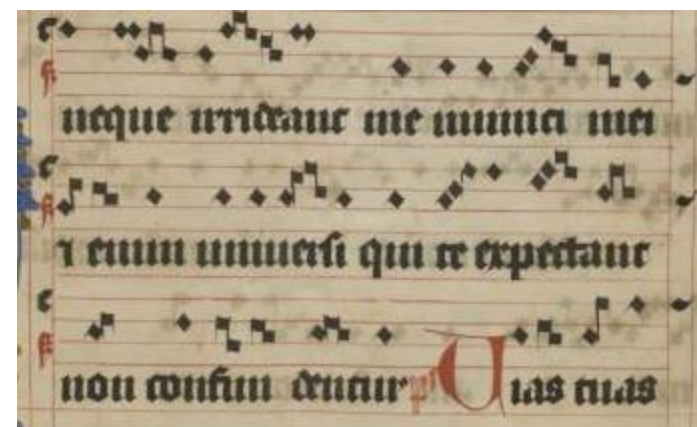 neque irrideant me inimici mei
⁊ enim universi qui te expectant
non confun dentur p̄s Vias tuas